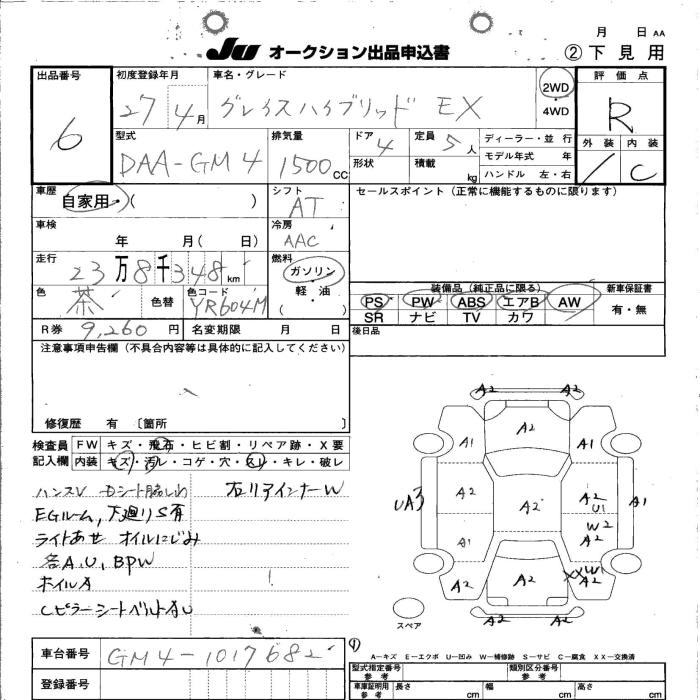 JU オークション出品申込書
月 日 AA
②下見用
出品番号
6
初度登録年月
27 4月
車名・グレード
グレイスハイブリッド EX
2WD
・
4WD
評価点
R
外装 内装
/ C
型式
DAA-GM4
排気量
1500cc
ドア 4
形状
定員 5人
積載 kg
ディーラー・並行
モデル年式 年
ハンドル 左・右
車歴 自家用・( )
シフト
AT
セールスポイント(正常に機能するものに限ります)
車検
年 月( 日)
冷房
AAC
走行
23万8千348km
燃料
ガソリン
・
軽油
( )
色
茶
色替
色コード
YR604M
装備品(純正品に限る)
PS PW ABS エアB AW
SR ナビ TV カワ
新車保証書
有・無
R券 9,260円 名変期限 月 日
後日品
注意事項申告欄(不具合内容等は具体的に記入してください)
修復歴 有 〔箇所 〕
検査員記入欄
FW キズ・飛石・ヒビ割・リペア跡・X要
内装 キズ・汚レ・コゲ・穴・スレ・キレ・破レ
ハンスレ Dシート脇しわ 右リアインナーW
EGルーム,下廻りS有
ライトあせ オイルにじみ
各A,U,BPW
ホイルA
Cピラーシートベルト
A2 A2
A2
A1 A1
UA3 A2 A2 A2 U1 A1
W2
A1 A2
XXW1
A2 A2 A2
A2 A2
スペア
車台番号 GM4-1017682
登録番号
A—キズ E—エクボ U—凹み W—補修跡 S—サビ C—腐食 XX—交換済
型式指定番号 参考
類別区分番号 参考
車庫証明用 参考
長さ cm 幅 cm 高さ cm